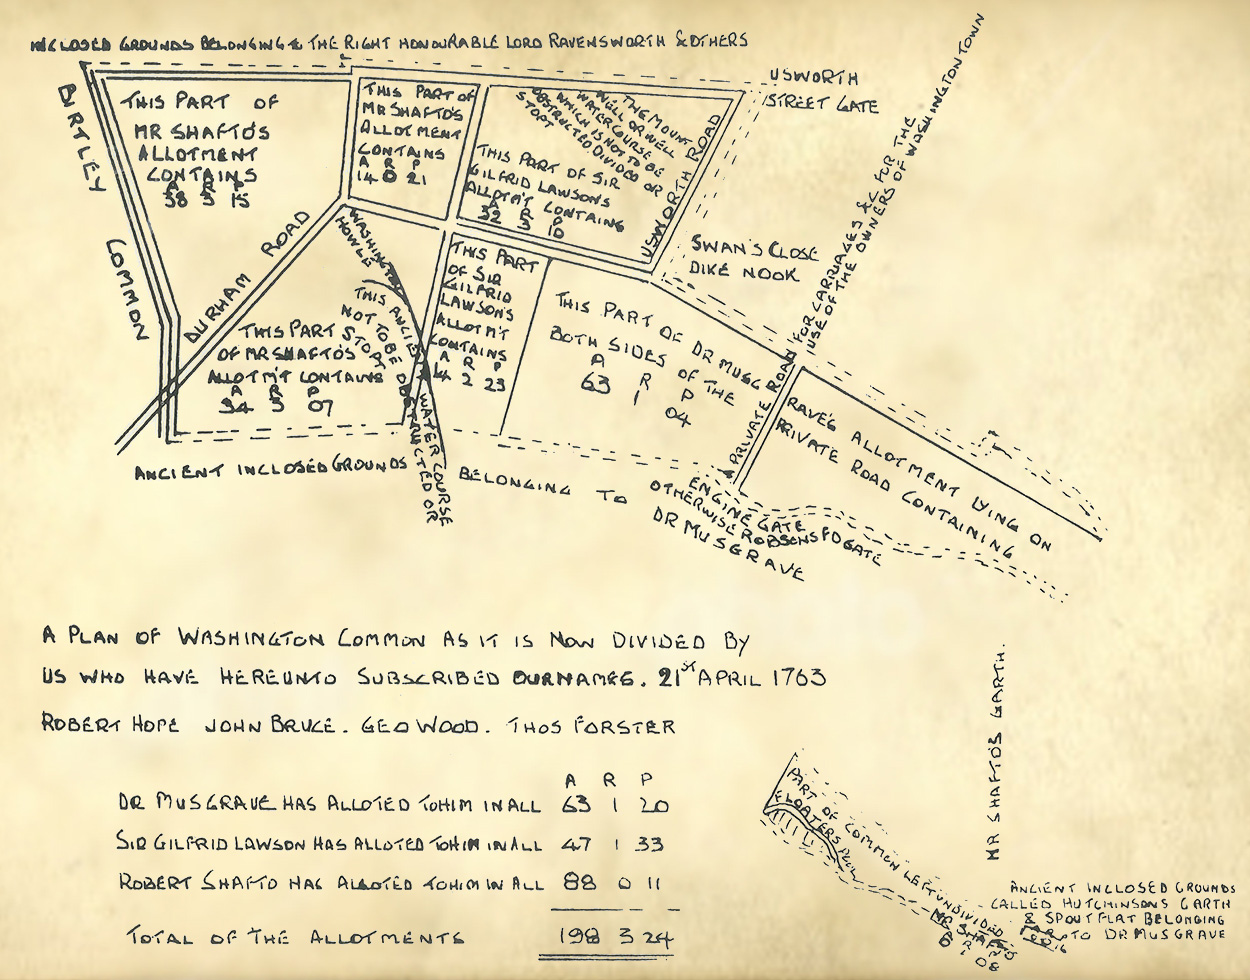 INCLOSED GROUNDS BELONGING TO THE RIGHT HONOURABLE LORD RAVENSWORTH & OTHERS
BIRTLEY COMMON
THIS PART OF
MR SHAFTO'S
ALLOTMENT
CONTAINS
A R P
38 3 15
THIS PART OF
MR SHAFTO'S
ALLOTMENT
CONTAINS
A R P
14 0 21
THE MOUNT
WELL OR WELL
WATERCOURSE
WHICH IS NOT TO BE
OBSTRUCTED DIVIDED OR
STOPT
THIS PART OF SIR
GILFRID LAWSON'S
ALLOTM'T CONTAINING
A R P
32 3 10
USWORTH ROAD
USWORTH
STREET GATE
SWAN'S CLOSE
DIKE NOOK
A PRIVATE ROAD FOR CARRIAGES &C FOR THE
USE OF THE OWNERS OF WASHINGTON TOWN
DURHAM ROAD
WASHINGTON
HOWLE
THIS ANCIENT WATER COURSE
NOT TO BE OBSTRUCTED OR
STOPT
THIS PART
OF MR SHAFTO'S
ALLOTM'T CONTAINS
A R P
34 3 07
THIS PART
OF SIR
GILFRID
LAWSON'S
ALLOTM'T
CONTAINS
A R P
14 2 23
THIS PART OF DR MUSG
BOTH SIDES OF THE
A R P
63 1 04
RAVE'S ALLOTMENT LYING ON
PRIVATE ROAD CONTAINING
ANCIENT INCLOSED GROUNDS BELONGING TO
DR MUSGRAVE
ENGINE GATE
OTHERWISE ROBSONS FD GATE
A PLAN OF WASHINGTON COMMON AS IT IS NOW DIVIDED BY
US WHO HAVE HEREUNTO SUBSCRIBED OUR NAMES. 21st APRIL 1763
ROBERT HOPE JOHN BRUCE. GEO WOOD. THOS FORSTER
A R P
DR MUSGRAVE HAS ALLOTED TO HIM IN ALL 63 1 20
SIR GILFRID LAWSON HAS ALLOTED TO HIM IN ALL 47 1 33
ROBERT SHAFTO HAS ALLOTED TO HIM IN ALL 88 0 11
TOTAL OF THE ALLOTMENTS 198 3 24
MR SHAFTO'S GARTH.
PART OF COMMON LEFT UNDIVIDED
FLOATERS POOL
MR SHAFTO'S
0 1 08
ANCIENT INCLOSED GROUNDS
CALLED HUTCHINSONS GARTH
& SPOUT FLAT BELONGING
TO DR MUSGRAVE